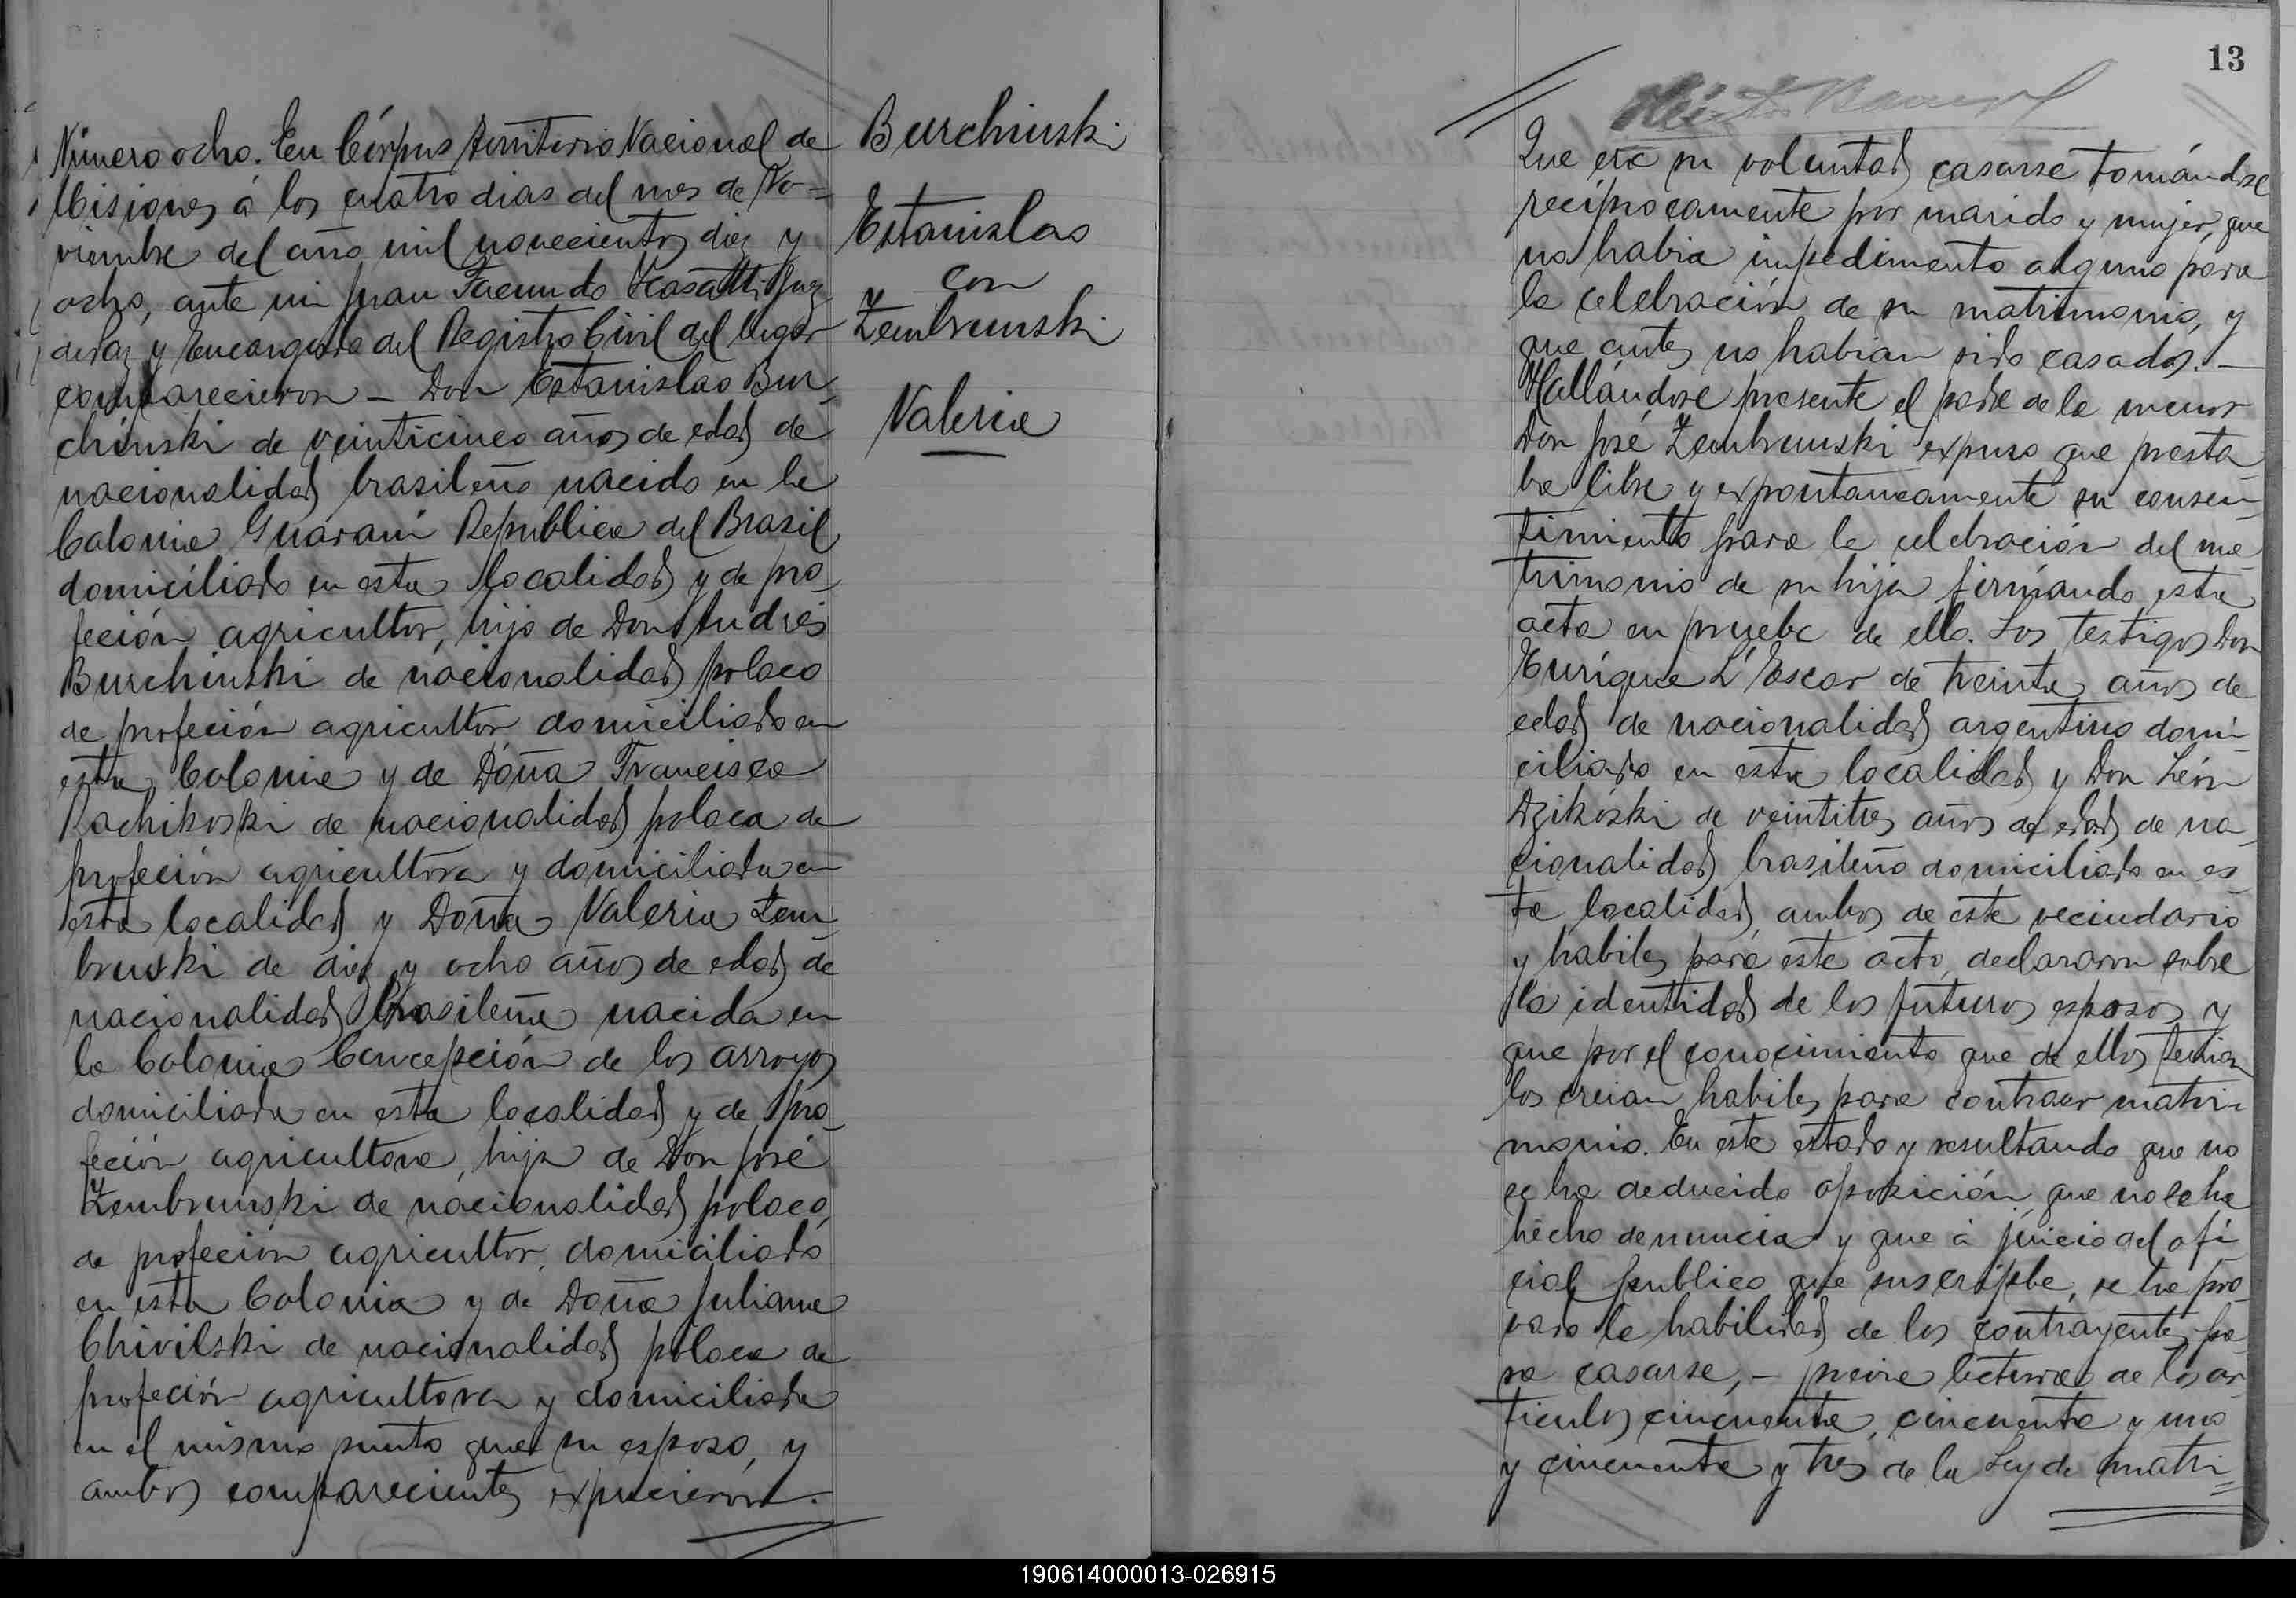 Número ocho. En Córpus Territorio Nacional de
Misiones á los cuatro dias del mes de No=
viembre del año mil novecientos diez y
ocho, ante mi Juan Facundo Juez
de Paz y Encargado del Registro Civil del lugar
comparecieron – Don Estanislao Bur
chinski de veinticinco años de edad de
nacionalidad brasileño nacido en la
Colonia Guaraní Republica del Brasil
domiciliado en esta localidad y de pro
feción agricultor, hijo de Don Andres
Burchinski de nacionalidad polaco
de profeción agricultor domiciliado en
esta Colonia y de Doña Francisca
Rachikoski de nacionalidad polaca de
profeción agricultora y domiciliada en
esta localidad y Doña Valeria Zem
bruski de diez y ocho años de edad de
nacionalidad brasileña nacida en
la Colonia Concepción de los arroyos
domiciliada en esta localidad y de pro
feción agricultora, hija de Don José
Zembrunski de nacionalidad polaco,
de profeción agricultor, domiciliado
en esta Colonia y de Doña Juliana
Chivilski de nacionalidad polaca de
profeción agricultora y domiciliada
en el mismo punto que su esposo, y
ambos comparecientes expucieron.
Burchinski
Estanislao
con
Zembrunski
Valeria
13
Que era su voluntad casarse tomándose
recíprocamente por marido y mujer, que
no habia impedimento alguno para
la celebración de su matrimonio, y
que antes no habian sido casados. –
Hallándose presente el padre de la menor
Don José Zembrunski expuso que presta
ba libre y expontaneamente su consen
timiento para la celebración del ma
trimonio de su hija firmando esta
acta en prueba de ello. Los testigos Don
Enrique L'Escar de treinta años de
edad de nacionalidad argentino domi
ciliado en esta localidad y Don León
Dzikóski de veintitres años de edad de na
cionalidad brasileño domiciliado en es
ta localidad, ambos de este vecindario
y habiles para este acto, declararon sobre
la identidad de los futuros esposos y
que por el conocimiento que de ellos tenian
los creian habiles para contraer matri
monio. En este estado y resultando que no
se ha deducido oposición, que no se ha
hecho denuncia y que á juicio del ofi
cial publico que suscribe, se ha pro
vado la habilidad de los contrayentes pa
ra casarse, – previa lectura de los ar
ticulos cincuenta, cincuenta y uno
y cincuenta y tres de la Ley de matri=
190614000013-026915